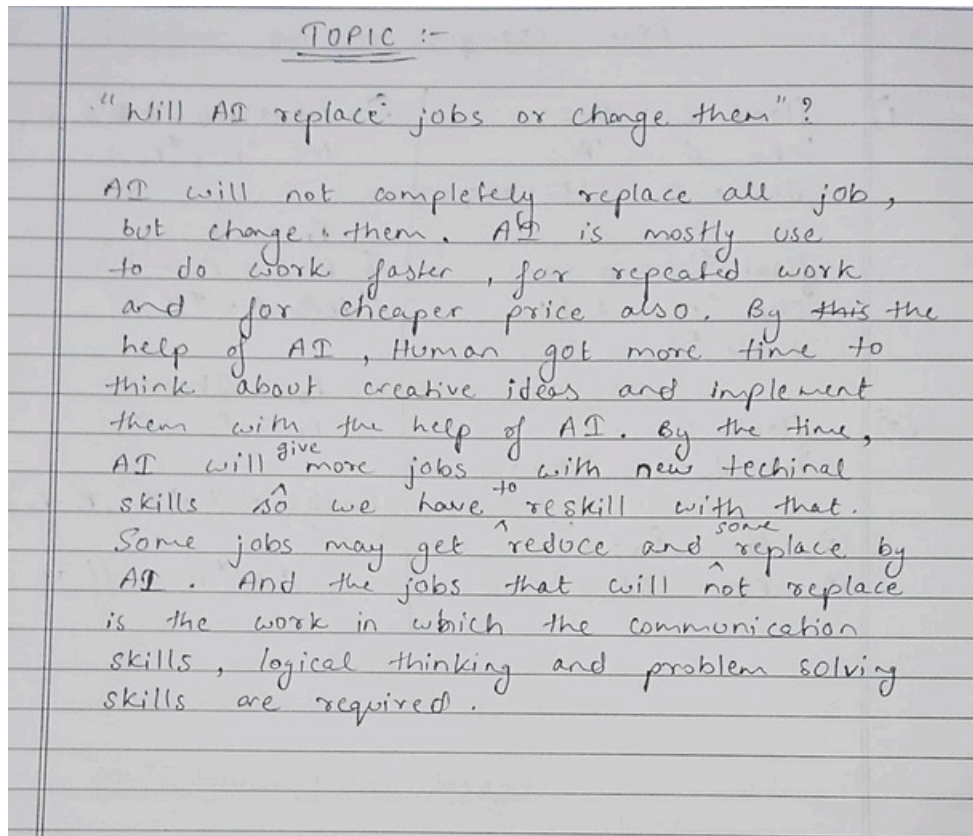 TOPIC :-
"Will AI replace jobs or change them" ?
AI will not completely replace all job,
but change them. AI is mostly use
to do work faster, for repeated work
and for cheaper price also. By this the
help of AI, Human got more time to
think about creative ideas and implement
them with the help of AI. By the time,
AI will give more jobs with new techinal
skills so we have to reskill with that.
Some jobs may get reduce and some replace by
AI. And the jobs that will not replace
is the work in which the communication
skills, logical thinking and problem solving
skills are required.